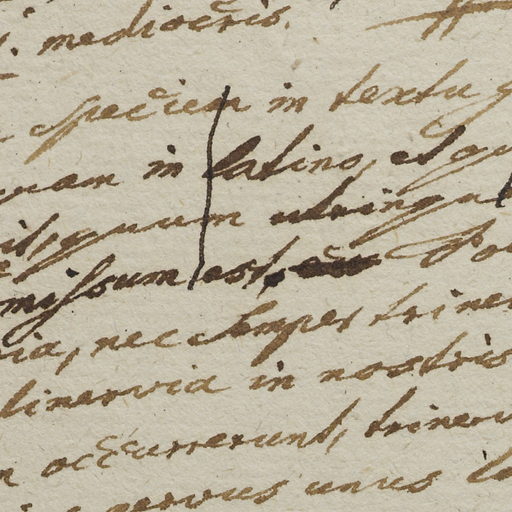 mediocris.
speciem in textu
quam in latino, et qu
it, quum utrinqu
missum est,
ia, nec semper triner
linervia in nostris
occurrerunt, trinerv
nervus unus